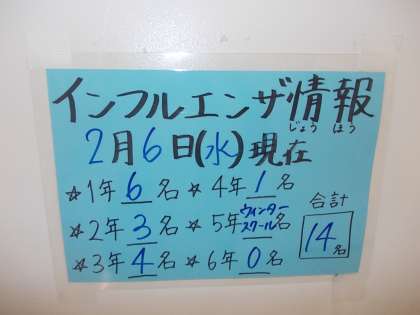 インフルエンザ情報
じょう ほう
2月6日(水)現在
☆1年 6名 ☆4年 1名
☆2年 3名 ☆5年 ウィンタースクール名
☆3年 4名 ☆6年 0名
合計
14名